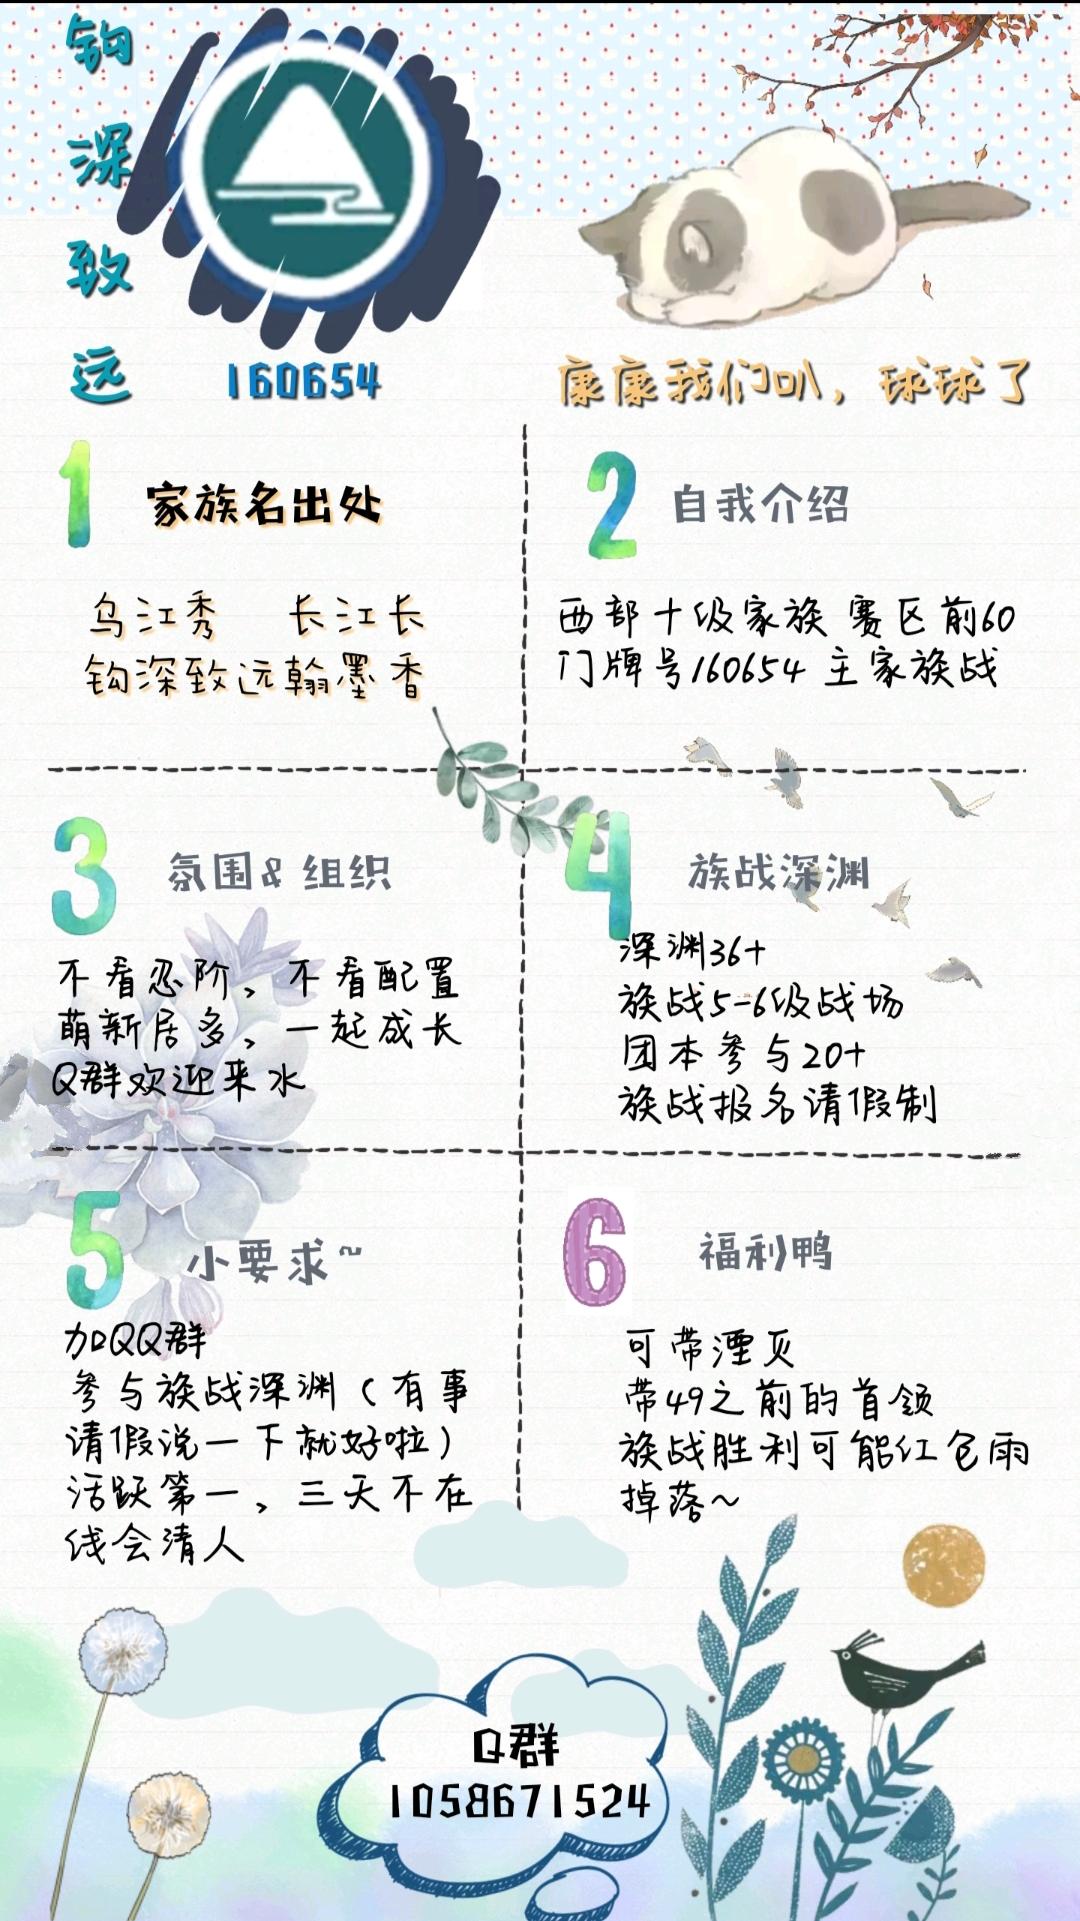 钩深致远
160654
康康我们叭，球球了
1
家族名出处
乌江秀 长江长
钩深致远翰墨香
2
自我介绍
西部十级家族 赛区前60
门牌号160654 主家族战
3
氛围&组织
不看忍阶、不看配置
萌新居多，一起成长
Q群欢迎来水
4
族战深渊
深渊36+
族战5-6级战场
团本参与20+
族战报名请假制
5
小要求~
加QQ群
参与族战深渊（有事
请假说一下就好啦）
活跃第一，三天不在
线会清人
6
福利鸭
可带湮灭
带49之前的首领
族战胜利可能红包雨
掉落~
Q群
1058671524